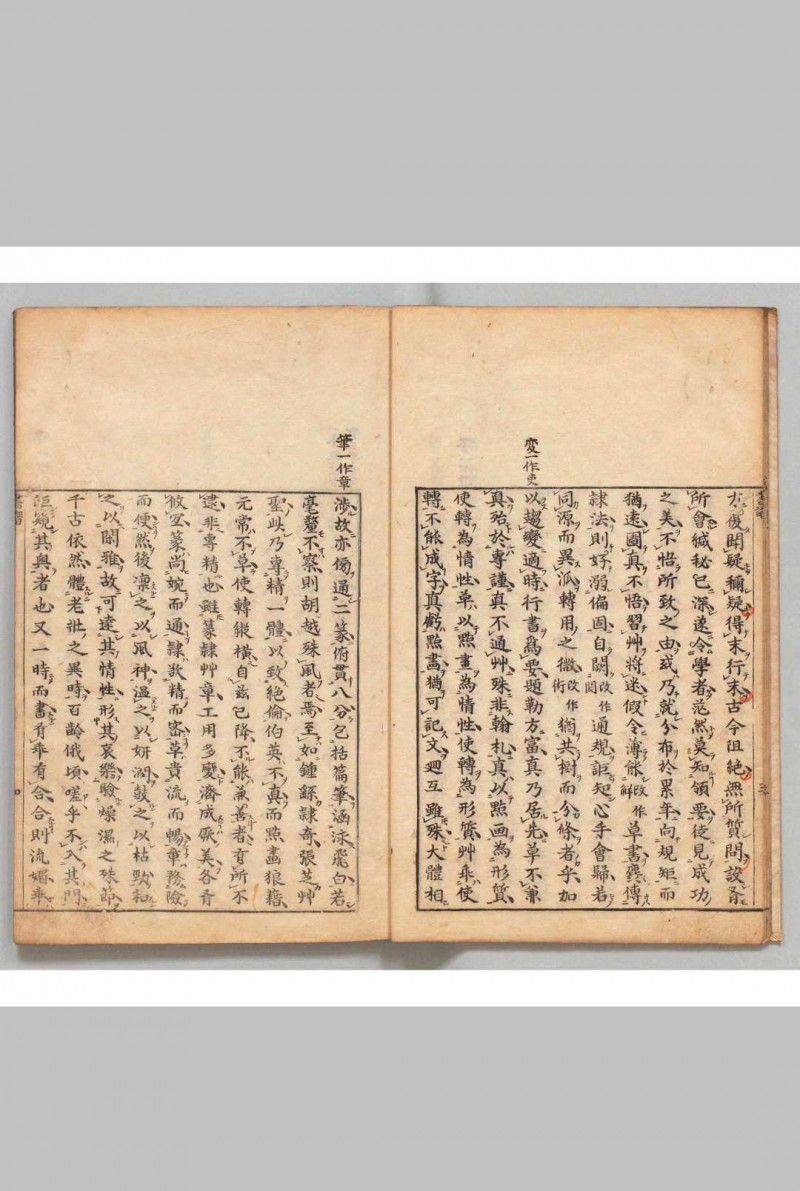 変一作史
求後問疑稱疑得末行末古今阻絶無所質問設有
所會緘秘已深遂令學者茫然莫知領要徒見成功
之美不悟所致之由或乃就分布於累年向規矩而
猶遠圖真不悟習艸將迷假令薄能改作解草書麁傳
隸法則好溺偏固自闕改作閡通規詎知心手會歸若
同源而異派轉用之微改作術猶共樹而分條者乎加
以趨變適時行書為要題勒方富真乃居先草不兼
真殆於專謹真不通艸殊非翰札真以點画為形質
使轉為情性草以點畫為情性使轉為形質艸乖使
轉不能成字真虧點畫猶可記文廻互雖殊大體相
筆一作章
涉故亦傍通二篆俯貫八分包括篇筆涵泳飛白若
毫釐不察則胡越殊風者焉至如鍾繇隷奇張芝艸
聖此乃專精一體以致絶倫伯英不真而點畫狼藉
元常不草使轉縱橫自玆已降不能兼善者有所不
逮非專精也雖篆隷艸章工用多變濟成厥美各有
攸宜篆尚婉而通隷欲精而密草貴流而暢章務險
而便然後凜之以風神温之以妍潤鼓之以枯勁和
之以閑雅故可達其情性形其哀樂驗燥濕之殊節
千古依然體老壯之異時百齡俄頃嗟乎不入其門
詎窺其奥者也又一時而書有乖有合合則流媚乖